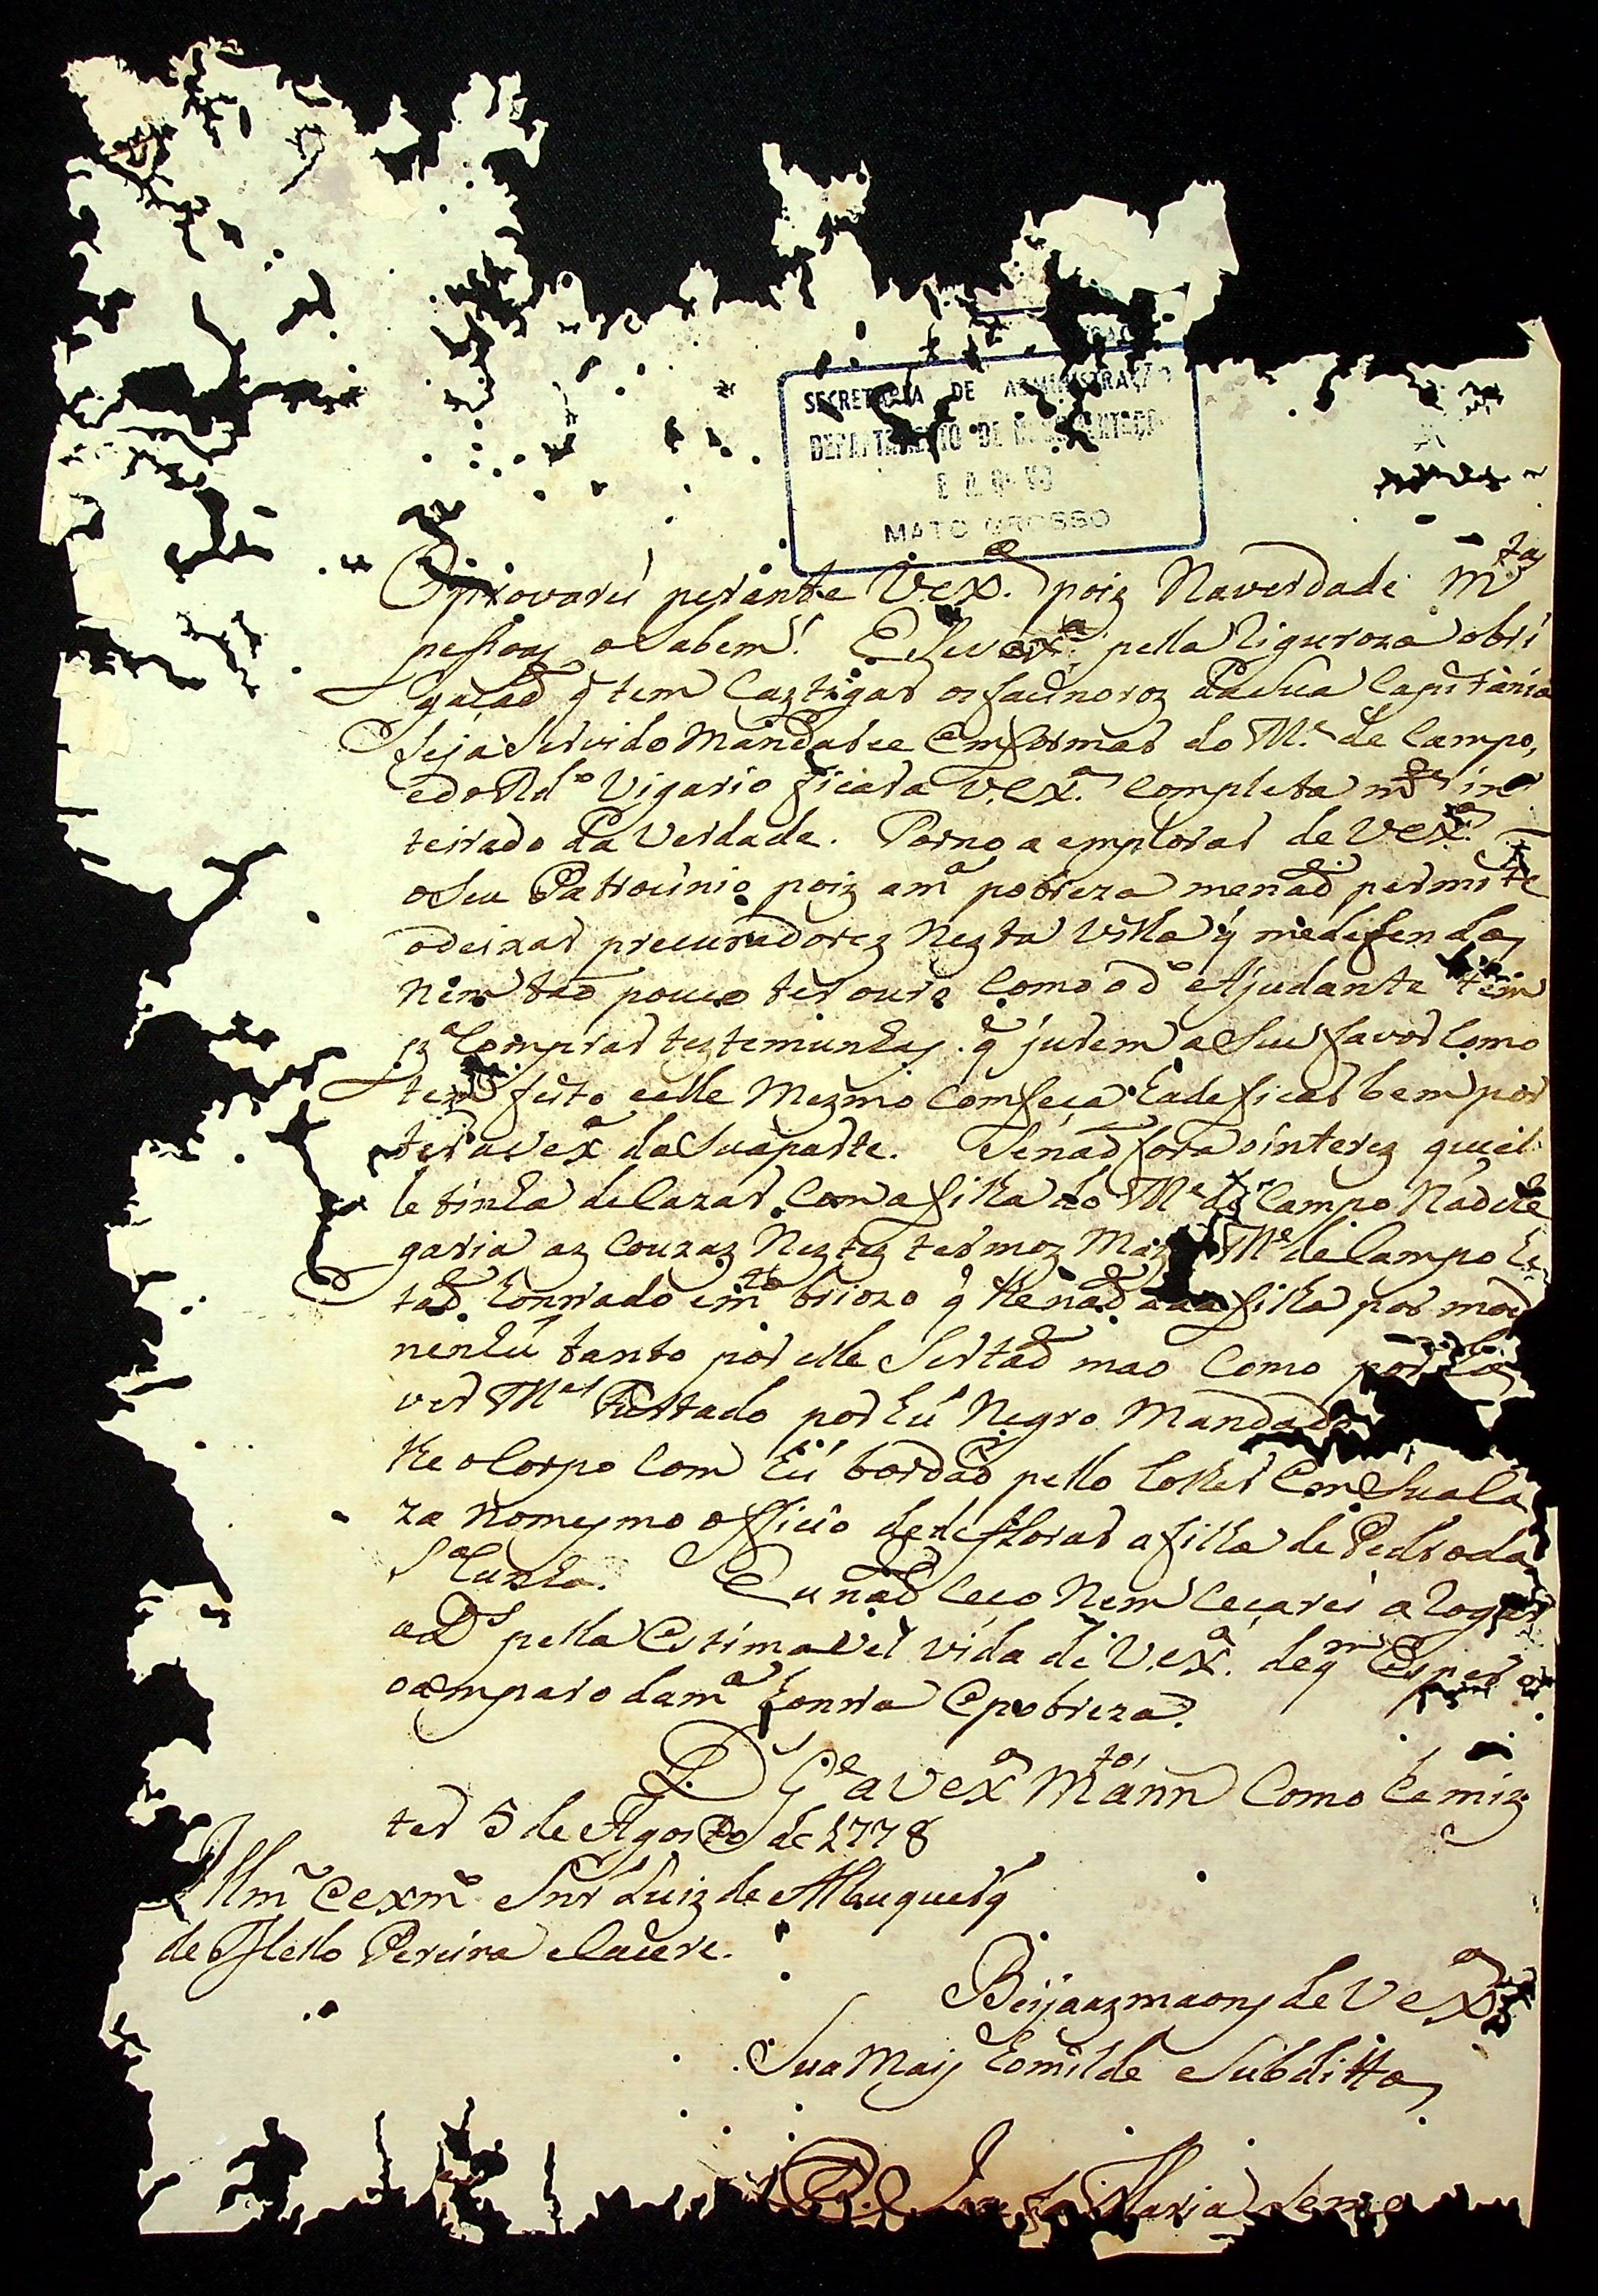 SECRETARIA DE ADMINISTRAÇÃO
DEPARTAMENTO DE
MATO GROSSO
provarei perante V.Exª. poiz Naverdade mtas
pessoas o Sabem! E Se vexª. pella Riguroza obri
gaçaõ q̃ tem Caztigar os facinoroz daSua Capitánia
Seja Servido Mandarce emformar do Me. de Campo,
edo Rdo Vigario ficara V.Exª. Completa mte in
teirado da Verdade. Torno a emplorar de Vexª.
oSeu Patrocinio poiz amª pobreza menaõ permite
odeixar precuradorez Nezta Villa q̃ medefendaõ
nem taõ pouco ter ouro Como o do Ajudante tem
pª Comprar teztemunhas. q̃ jurem a Seu favor Como
tem feito eelle Mezmo Comfeça hadeficar bem por
ter aVexª da Suaparte. Senaõ fora ointerez queel
le tinha deCazar Com afilha do Me de Campo Naõ che
garia az Couzaz Neztez termoz Maz Me de Campo he
taõ honrrado emto briozo q̃ lhe naõ afilha por modo
nenhũ tanto por elle Ser taõ mao Como por
ver Mel Furtado por hũ Negro Mandado
lhe oCorpo Com hũ bordaõ pello Colher Em SuaCa
za Nomesmo officio dedeflorar afilha de Pedro da
Sª Cunha. Eu naõ Ceço Nem Ceçarei aRogar
aDs pella Estimavel vida de V.exª. deqm Espero
oamparo damª honrra Epobreza.
D Ge aVexª Mtos ann Como hemiz
ter 5 de Agosto de 1778
Illmo Eexmo Snr Luiz de Albuquerq̃
de Mello Pereira eCacere.
Beijaazmaons de Vexª
Sua Mais homilde eSubditta
Maria Leme